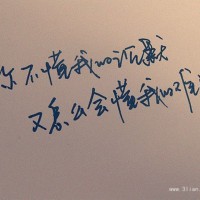 你不懂我的沉默
又怎么会懂我的难
www.3lian.